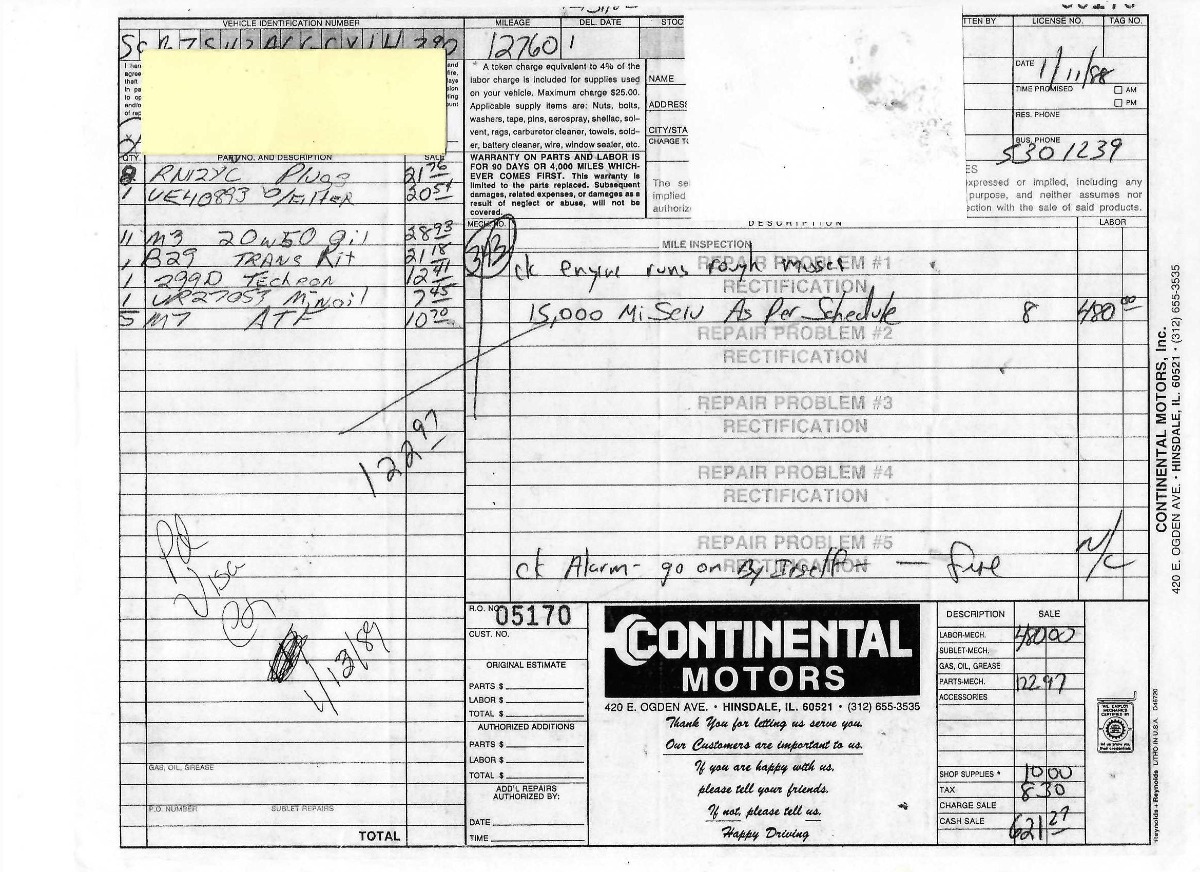 VEHICLE IDENTIFICATION NUMBER
MILEAGE
DEL. DATE
STOC
TTEN BY
LICENSE NO.
TAG NO.
12760 1
* A token charge equivalent to 4% of the
labor charge is included for supplies used
on your vehicle. Maximum charge $25.00.
Applicable supply items are: Nuts, bolts,
washers, tape, pins, aerospray, shellac, sol-
vent, rags, carburetor cleaner, towels, sold-
er, battery cleaner, wire, window sealer, etc.
WARRANTY ON PARTS AND LABOR IS
FOR 90 DAYS OR 4,000 MILES WHICH-
EVER COMES FIRST. This warranty is
limited to the parts replaced. Subsequent
damages, related expenses, or damages as a
result of neglect or abuse, will not be
covered.
NAME
ADDRESS
CITY/STA
CHARGE TO
The se
implied
authoriz
DATE 1/11/88
TIME PROMISED
AM
PM
RES. PHONE
BUS. PHONE
530 1239
ES
expressed or implied, including any
purpose, and neither assumes nor
ection with the sale of said products.
QTY. PART NO. AND DESCRIPTION SALE
8 RN12YC Plugs 21 76
1 UE40893 O/FILTER 20 54
11 M3 20W50 Oil 28 93
1 B29 TRANS Kit 21 18
1 299D Techron 12 41
1 UR27053 Min oil 7 45
5 M7 ATF 10 70
122 97
Pd
Visa
1/13/89
GAS, OIL, GREASE
P.O. NUMBER
SUBLET REPAIRS
TOTAL
MECH NO.
DESCRIPTION
LABOR
343
MILE INSPECTION
REPAIR PROBLEM #1
ck engine runs rough misses
RECTIFICATION
15,000 Mi Serv As Per Schedule 8 480 00
REPAIR PROBLEM #2
RECTIFICATION
REPAIR PROBLEM #3
RECTIFICATION
REPAIR PROBLEM #4
RECTIFICATION
REPAIR PROBLEM #5
RECTIFICATION
ck Alarm - go on By Itself - N/C
R.O. NO. 05170
CUST. NO.
ORIGINAL ESTIMATE
PARTS $
LABOR $
TOTAL $
AUTHORIZED ADDITIONS
PARTS $
LABOR $
TOTAL $
ADD'L REPAIRS
AUTHORIZED BY:
DATE
TIME
CONTINENTAL
MOTORS
420 E. OGDEN AVE. • HINSDALE, IL. 60521 • (312) 655-3535
Thank You for letting us serve you.
Our Customers are important to us.
If you are happy with us,
please tell your friends.
If not, please tell us.
Happy Driving
DESCRIPTION SALE
LABOR-MECH. 480 00
SUBLET-MECH.
GAS, OIL, GREASE
PARTS-MECH. 122 97
ACCESSORIES
SHOP SUPPLIES * 10 00
TAX 8 30
CHARGE SALE
CASH SALE 621 27
CONTINENTAL MOTORS, Inc.
420 E. OGDEN AVE. • HINSDALE, IL. 60521 • (312) 655-3535
Reynolds + Reynolds LITHO IN U.S.A.